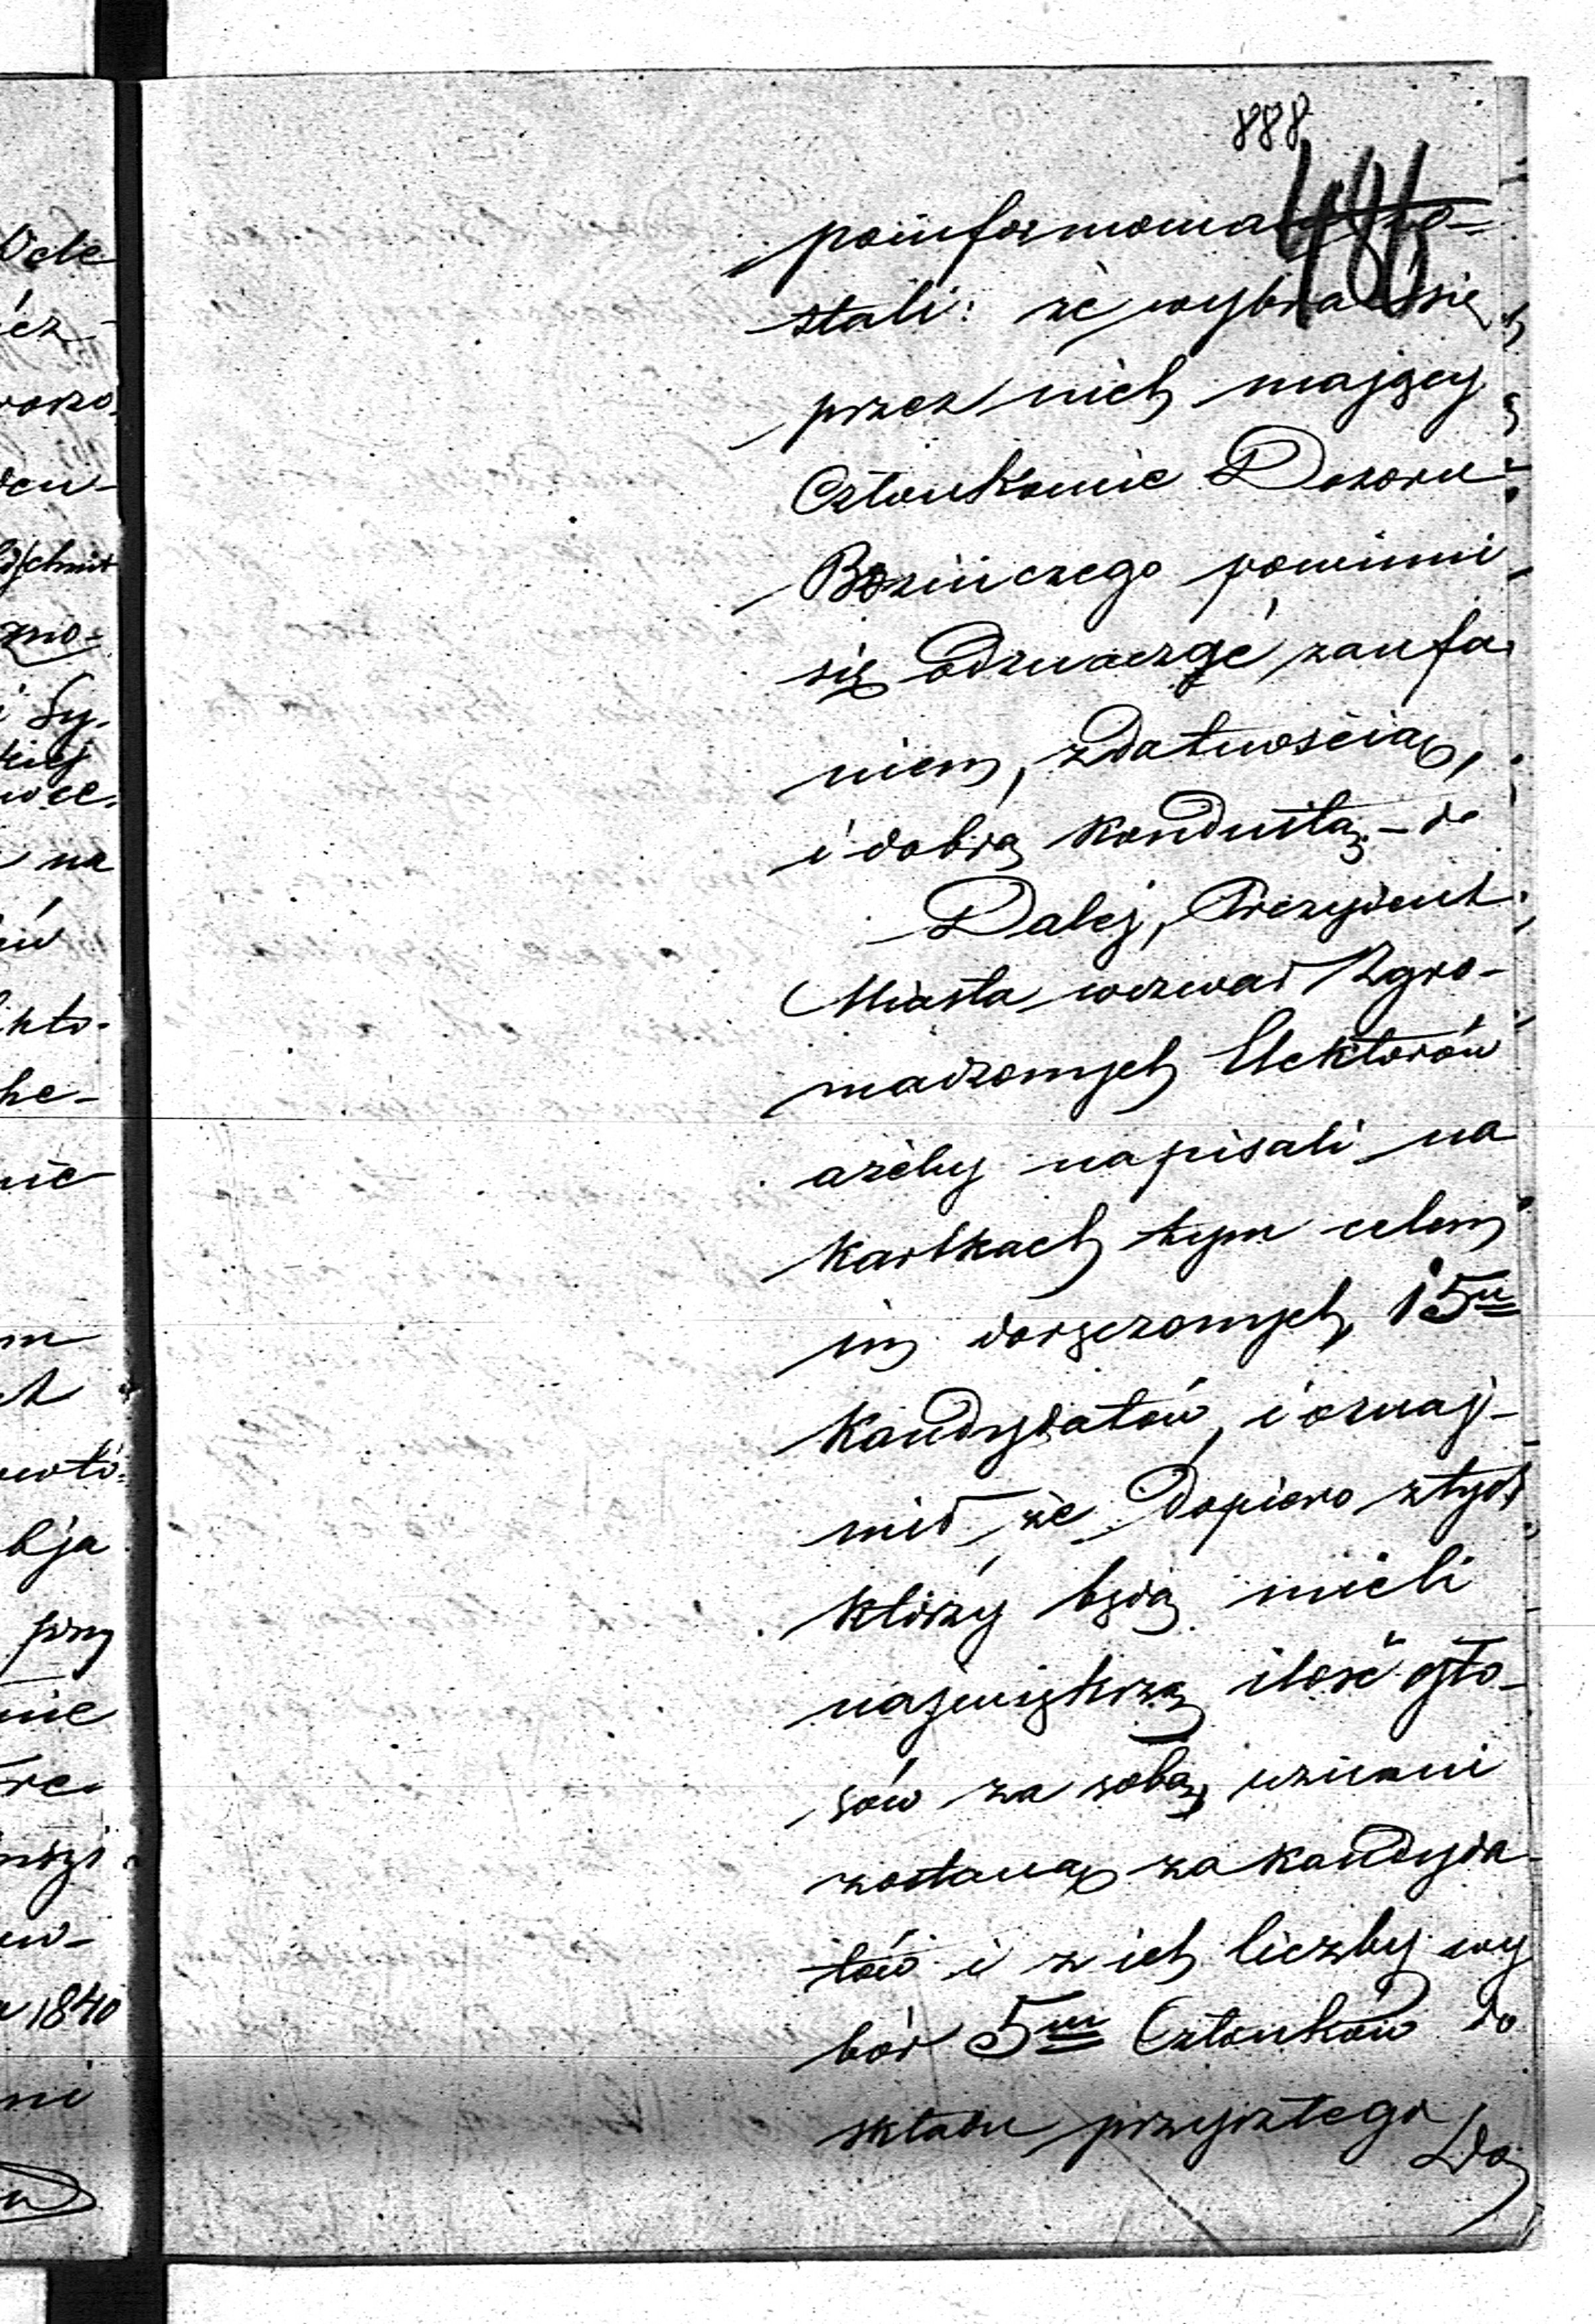 888
486
poinformowa
stali: że wybrać się
przez nich mający
Członkowie Dozoru
Bożniczego powinni
się odznaczać zaufa
niem, zdatnością,
i dobrą konduitą. – 
Dalej, Prezydent
Miasta wezwał Zgro-
madzonych Elektorów
ażeby napisali na
kartkach tym celem
im doręczonych, 15u
Kandydatów, i oznaj-
mił, że Dopiero z tych
którzy będą mieli
największą ilość gło-
sów za sobą, uznani
zostaną za kandyda-
tów i z ich liczby wy
bór 5ciu Członków do
składu przyszłego
Do
Ode
éz
na
ów
kto-
he-
nie
bja
przy
nie
1840